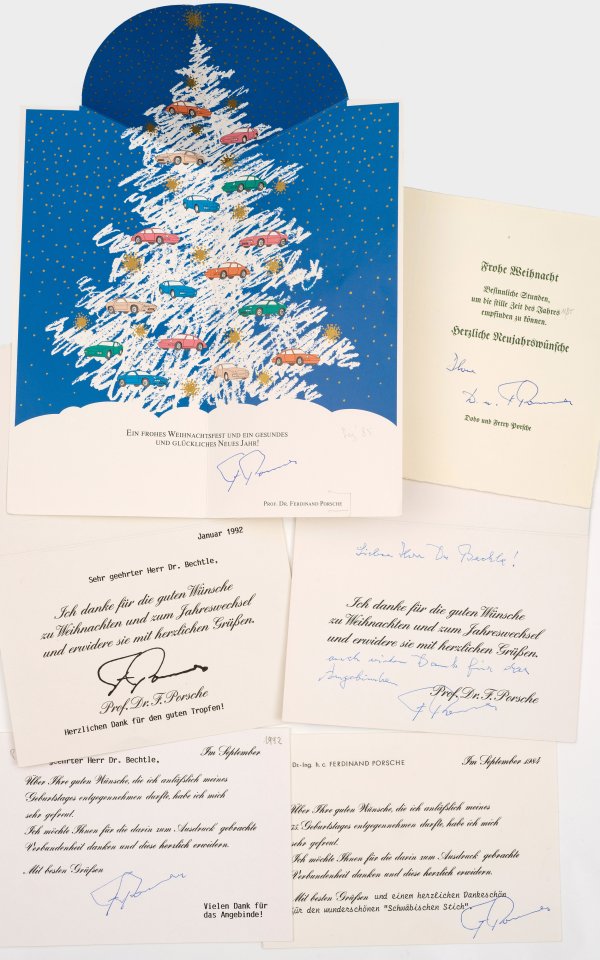 EIN FROHES WEIHNACHTSFEST UND EIN GESUNDES
UND GLÜCKLICHES NEUES JAHR!
Dez. 85
F Porsche
PROF. DR. FERDINAND PORSCHE
Frohe Weihnacht
Besinnliche Stunden,
um die stille Zeit des Jahres
empfinden zu können.
Herzliche Neujahrswünsche
Ihre
D. u. F Porsche
Dodo und Ferry Porsche
Januar 1992
Sehr geehrter Herr Dr. Bechtle,
Ich danke für die guten Wünsche
zu Weihnachten und zum Jahreswechsel
und erwidere sie mit herzlichen Grüßen.
F Porsche
Prof. Dr. F. Porsche
Herzlichen Dank für den guten Tropfen!
Lieber Herr Dr. Bechtle!
Ich danke für die guten Wünsche
zu Weihnachten und zum Jahreswechsel
und erwidere sie mit herzlichen Grüßen.
auch vielen Dank für das
Angebinde
Prof. Dr. F. Porsche
F Porsche
1992
geehrter Herr Dr. Bechtle,
Im September
Über Ihre guten Wünsche, die ich anläßlich meines
Geburtstages entgegennehmen durfte, habe ich mich
sehr gefreut.
Ich möchte Ihnen für die darin zum Ausdruck gebrachte
Verbundenheit danken und diese herzlich erwidern.
Mit besten Grüßen
F Porsche
Vielen Dank für
das Angebinde!
Dr.-Ing. h. c. FERDINAND PORSCHE
Im September 1984
Über Ihre guten Wünsche, die ich anläßlich meines
75. Geburtstages entgegennehmen durfte, habe ich mich
sehr gefreut.
Ich möchte Ihnen für die darin zum Ausdruck gebrachte
Verbundenheit danken und diese herzlich erwidern.
Mit besten Grüßen und einem herzlichen Dankeschön
für den wunderschönen "Schwäbischen Stich".
F Porsche